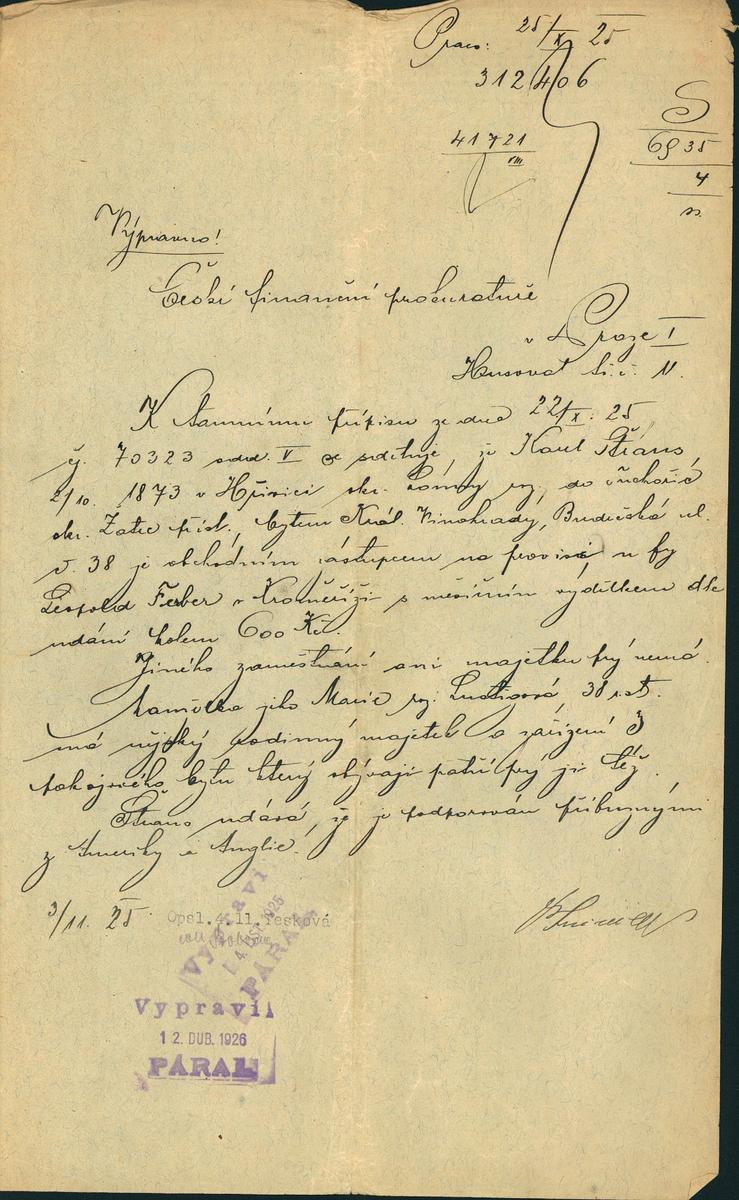 Prao: 25/X 25
312406
S
41721
VIII
6935
4
Výpraveno!
České finanční prokuratuře
v Praze I
Husova tř. č. 11.
K tamnímu přípisu ze dne 22/X. 25
čj. 70323 odd. V se sděluje, že Karel Štráns,
2/10. 1873 v Hřivici okr. Louny roz., do
okr. Žatec přísl., bytem Král. Vinohrady, Budečská ul.
č. 38 je obchodním zástupcem na provisi u fy
Leopold Ferber v Kroměříži s měsíčním výdělkem dle
udání kolem 600 Kč.
Jiného zaměstnání ani majetku prý nemá.
Manželka jeho Marie roz. Lustigová, 38 let.
má nějaký rodinný majetek a zařízení 3
pokojového bytu který obývají patří prý jí též.
Štráns udává, že je podporován příbuznými
z Ameriky a Anglie.
3/11. 25 Opsl. 4.11.
Vypravil
PÁRAL
Vypravil
12. DUB. 1926
PÁRAL